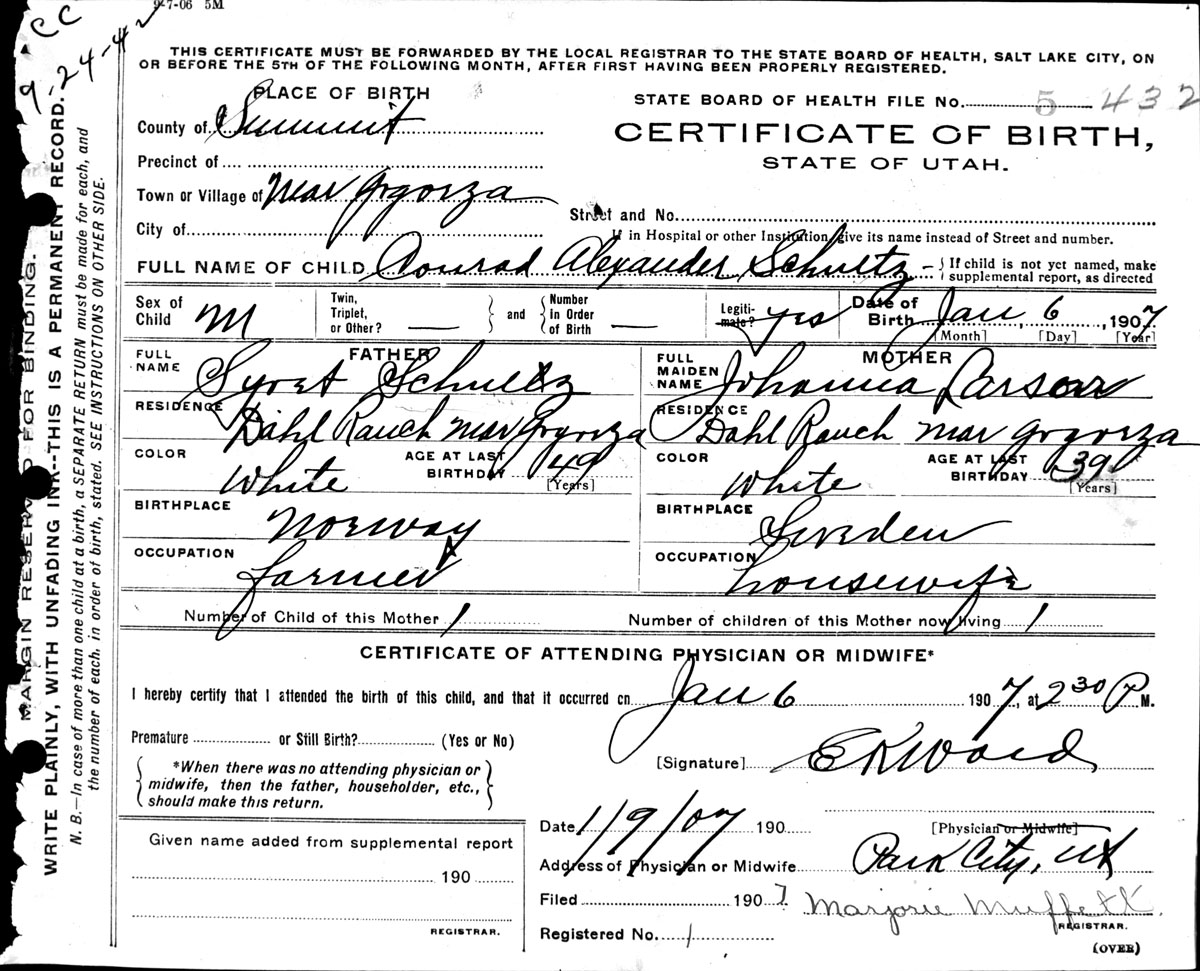 9-7-06 5M
CC
9-24-42
THIS CERTIFICATE MUST BE FORWARDED BY THE LOCAL REGISTRAR TO THE STATE BOARD OF HEALTH, SALT LAKE CITY, ON
OR BEFORE THE 5TH OF THE FOLLOWING MONTH, AFTER FIRST HAVING BEEN PROPERLY REGISTERED.
PLACE OF BIRTH
STATE BOARD OF HEALTH FILE No. 5 432
County of Summit
CERTIFICATE OF BIRTH,
Precinct of
STATE OF UTAH.
Town or Village of near Gogorza
Street and No.
City of
If in Hospital or other Institution, give its name instead of Street and number.
FULL NAME OF CHILD Conrad Alexander Schultz - { If child is not yet named, make supplemental report, as directed
Sex of Child M Twin, Triplet, or Other? — } and { Number In Order of Birth — Legitimate? yes Date of Birth Jan 6, 1907
[Month] [Day] [Year]
FATHER MOTHER
FULL NAME Syret Schultz FULL MAIDEN NAME Johanna Larson
RESIDENCE Dahl Ranch near Gogorza RESIDENCE Dahl Ranch near Gogorza
COLOR White AGE AT LAST BIRTHDAY 49 [Years] COLOR White AGE AT LAST BIRTHDAY 39 [Years]
BIRTHPLACE Norway BIRTHPLACE Sweden
OCCUPATION farmer OCCUPATION housewife
Number of Child of this Mother 1 Number of children of this Mother now living 1
CERTIFICATE OF ATTENDING PHYSICIAN OR MIDWIFE*
I hereby certify that I attended the birth of this child, and that it occurred on Jan 6 1907, at 2 30 P M.
Premature or Still Birth? (Yes or No)
[Signature] E K Ward
{ *When there was no attending physician or midwife, then the father, householder, etc., should make this return. }
Date 1/9/07 190
[Physician or Midwife]
Given name added from supplemental report
Address of Physician or Midwife Park City, Ut
190
Filed 1907 Marjorie Muffett
REGISTRAR.
REGISTRAR.
Registered No. 1
(OVER)
MARGIN RESERVED FOR BINDING.
WRITE PLAINLY, WITH UNFADING INK--THIS IS A PERMANENT RECORD.
N. B.—In case of more than one child at a birth, a SEPARATE RETURN must be made for each, and
the number of each, in order of birth, stated. SEE INSTRUCTIONS ON OTHER SIDE.